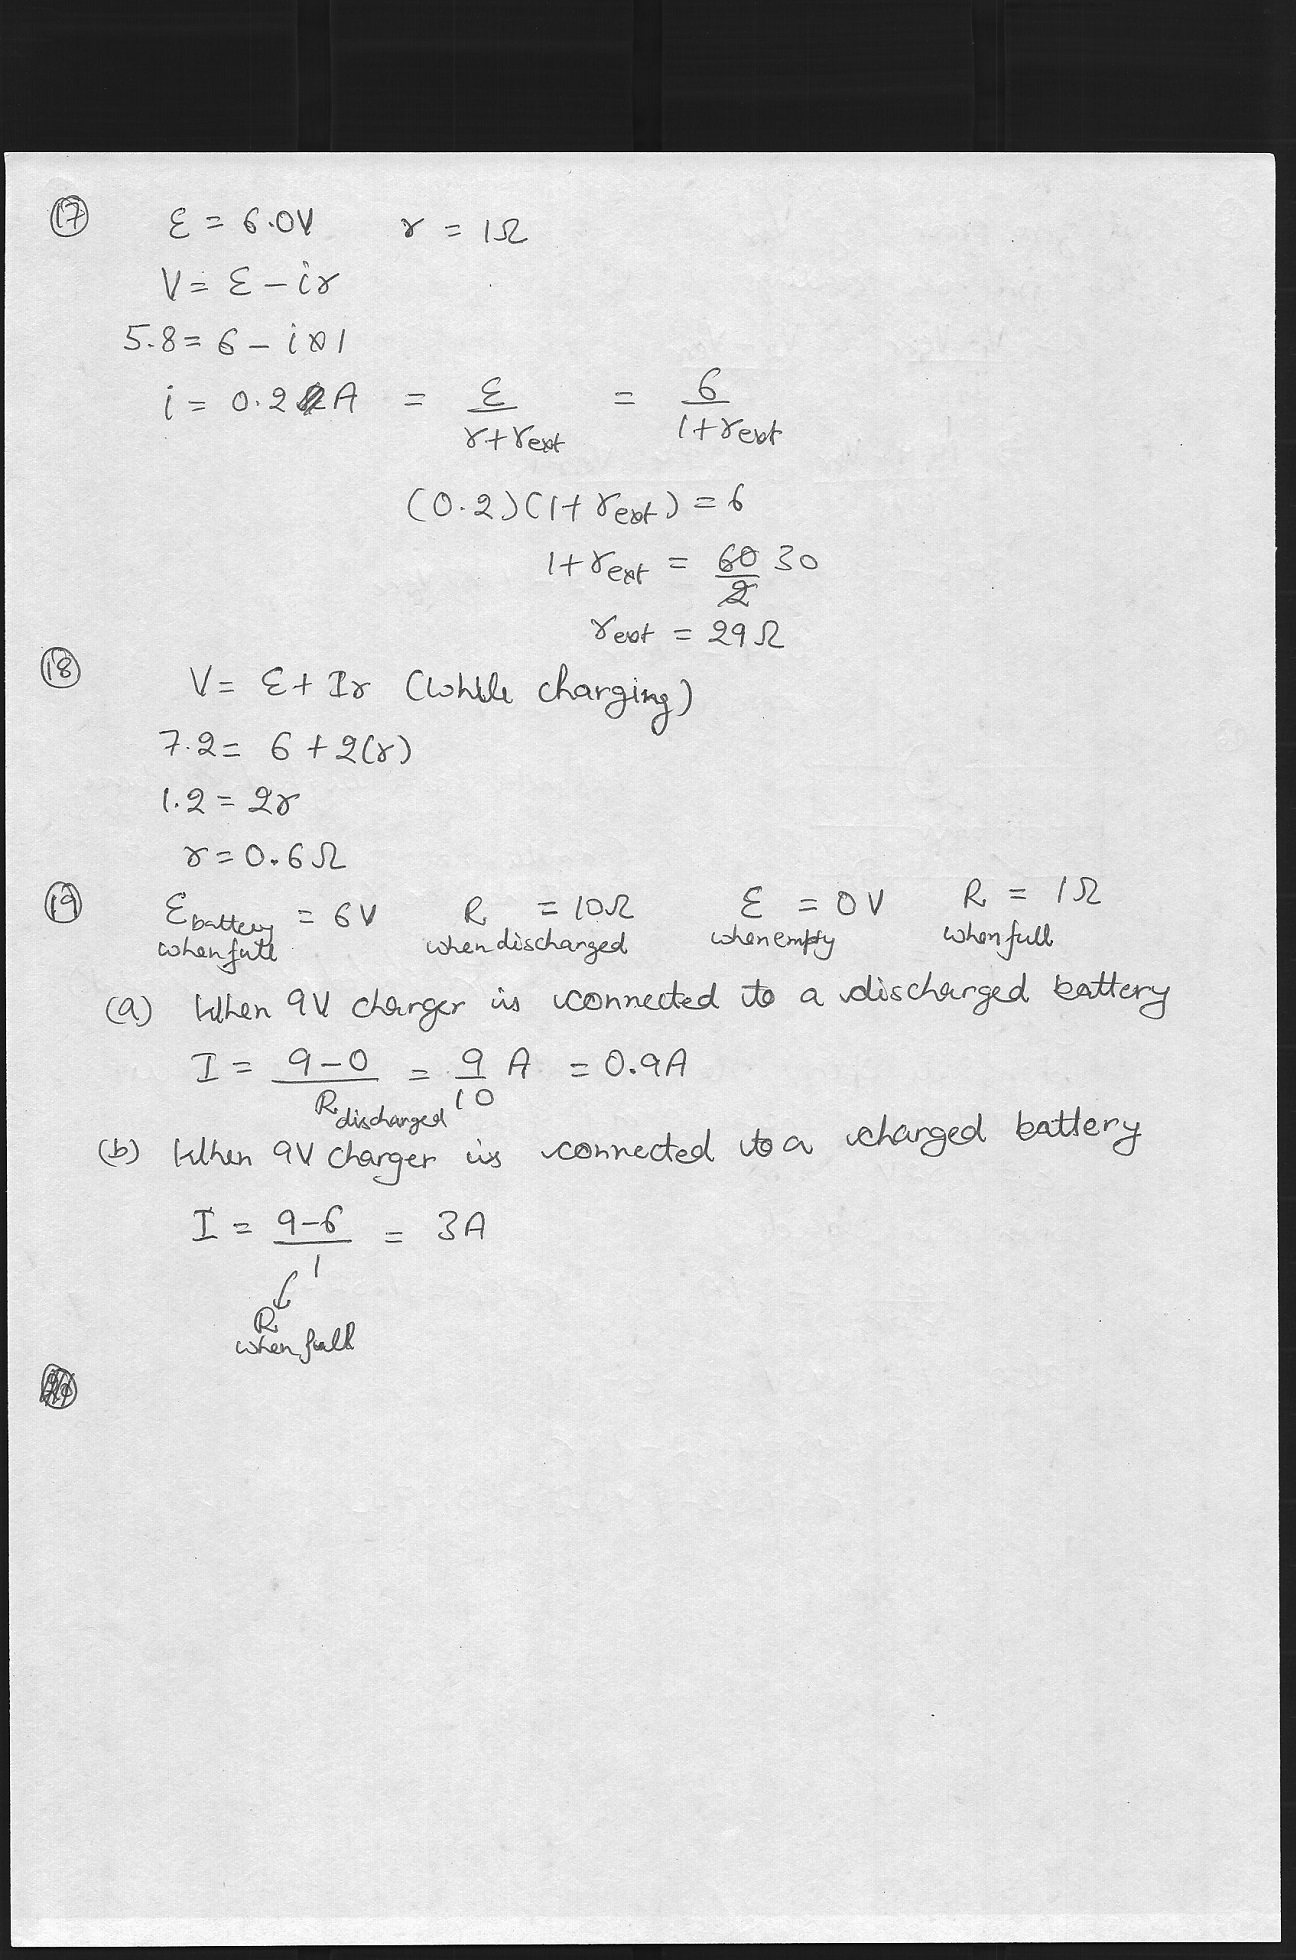 17 ε = 6.0V r = 1Ω
V = ε - ir
5.8 = 6 - i×1
i = 0.2 A = ε/(r+rext) = 6/(1+rext)
(0.2)(1+rext) = 6
1+rext = 60/2 30
rext = 29Ω
18 V = ε + Ir (while charging)
7.2 = 6 + 2(r)
1.2 = 2r
r = 0.6Ω
19 ε battery when full = 6V R when discharged = 10Ω ε when empty = 0V R when full = 1Ω
(a) When 9V charger is connected to a discharged battery
I = (9-0)/R discharged = 9/10 A = 0.9A
(b) When 9V charger is connected to a charged battery
I = (9-6)/1 = 3A
R
when full